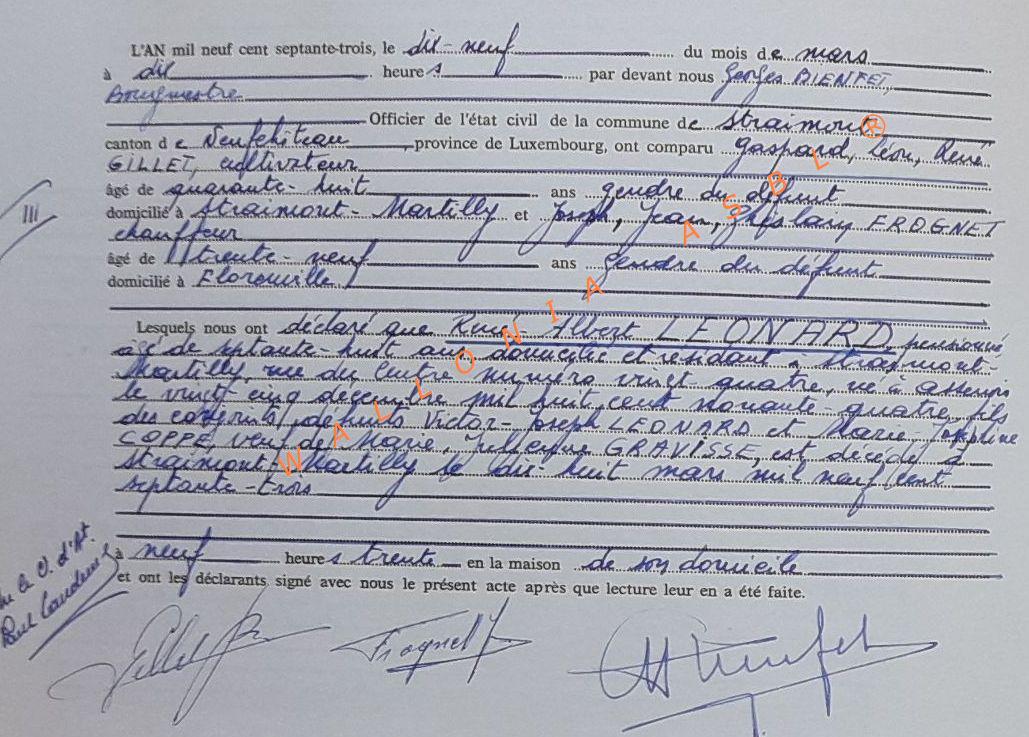 L'AN mil neuf cent septante-trois, le dix-neuf du mois de mars
à dix heures par devant nous Georges BIENFET,
Bourgmestre
Officier de l'état civil de la commune de Straimont
canton de Neufchâteau, province de Luxembourg, ont comparu Gaspard, Léon, René
GILLET, cultivateur
âgé de quarante-huit ans gendre du défunt
III
domicilié à Straimont-Martilly et Joseph, Jean, Ghislain FROGNET
chauffeur
âgé de trente-neuf ans gendre du défunt
domicilié à Florenville
Lesquels nous ont déclaré que René-Albert LEONARD, pensionné,
âgé de septante-huit ans, domicilié et résidant à Straimont-
Martilly, rue du Centre numéro vingt quatre, né à Assenois
le vingt cinq décembre mil huit cent nonante-quatre, fils
des conjoints défunts Victor-Joseph LEONARD et Marie-Joséphine
COPPE, veuf de Marie, GRAVISSE, est décédé à
Straimont-Martilly le dix-huit mars mil neuf cent
septante-trois
à neuf heures trente en la maison de son domicile
et ont les déclarants signé avec nous le présent acte après que lecture leur en a été faite.
Paul
Gillet Frognet J
WALLONIA ASBL ®